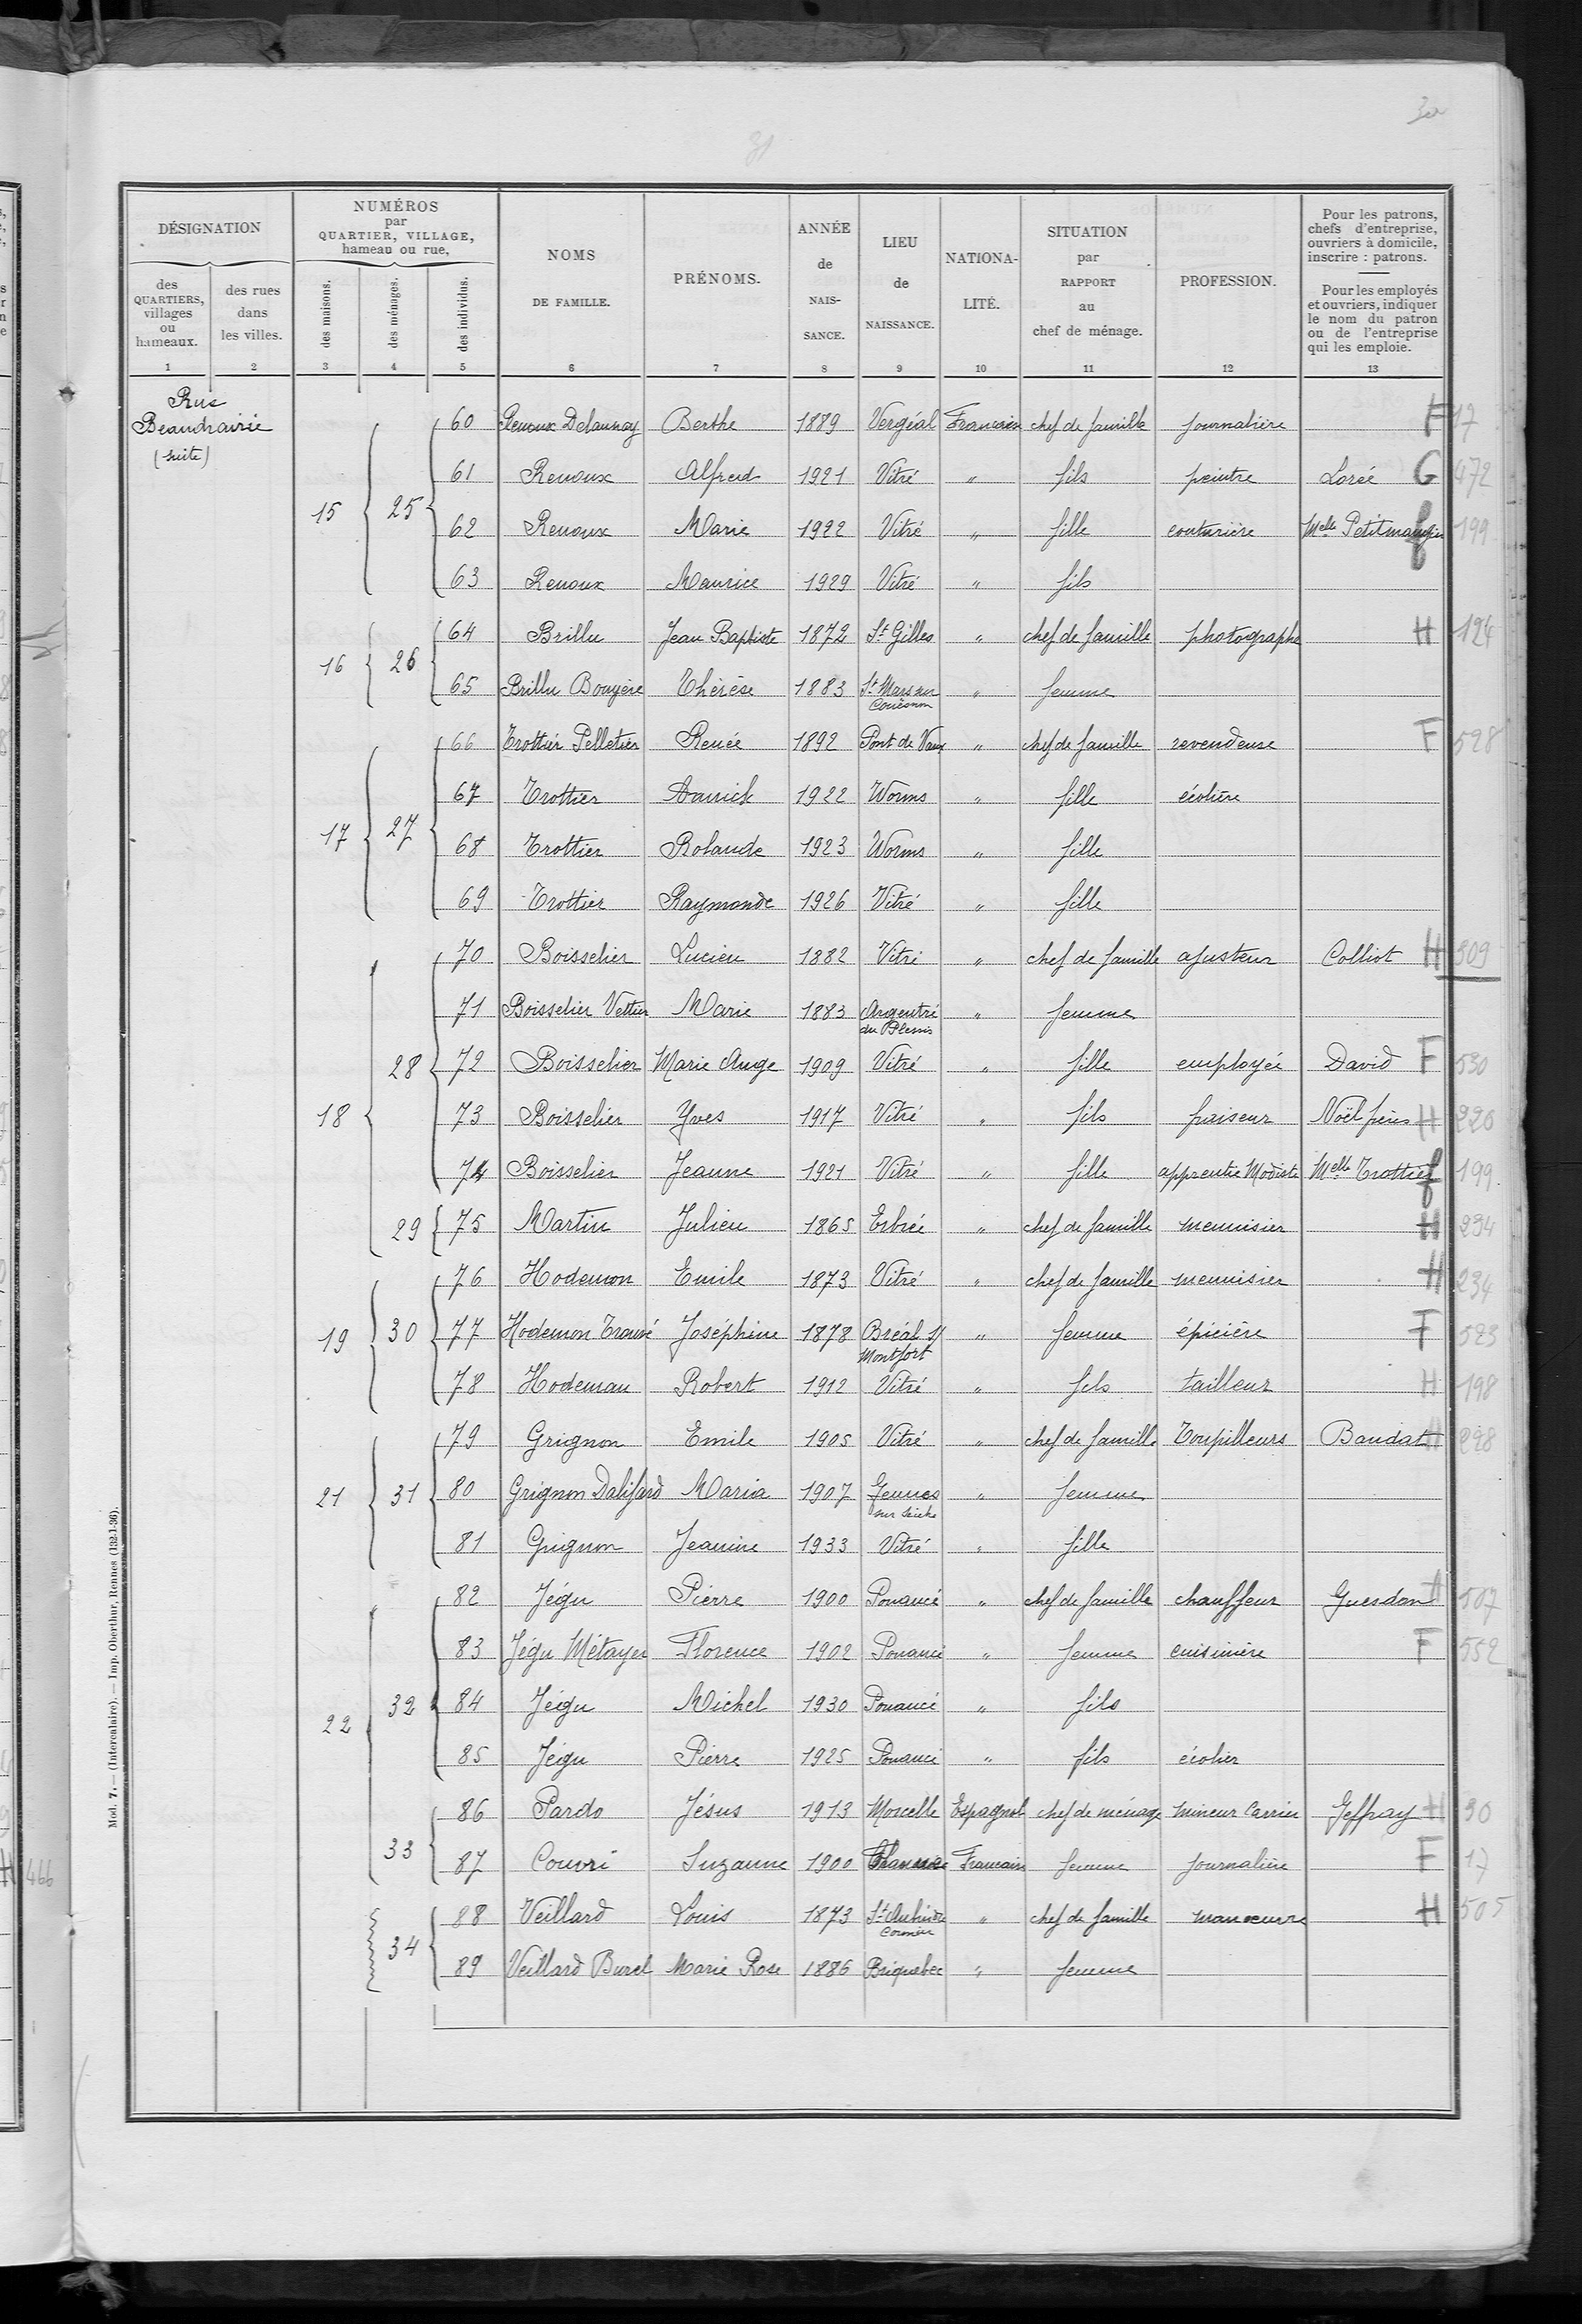 30
31
DÉSIGNATION
des QUARTIERS, villages ou hameaux.
des rues dans les villes.
NUMÉROS par QUARTIER, VILLAGE, hameau ou rue,
des maisons.
des ménages.
des individus.
NOMS DE FAMILLE.
PRÉNOMS.
ANNÉE de NAISSANCE.
LIEU de NAISSANCE.
NATIONALITÉ.
SITUATION par RAPPORT au chef de ménage.
PROFESSION.
Pour les patrons, chefs d'entreprise, ouvriers à domicile, inscrire : patrons.
Pour les employés et ouvriers, indiquer le nom du patron ou de l'entreprise qui les emploie.
1 2 3 4 5 6 7 8 9 10 11 12 13
Rue
Beaudrairie
(suite)
60 Renoux Delaunay Berthe 1889 Vergéal Francaise chef de famille journalière F 17
61 Renoux Alfred 1921 Vitré " fils peintre Lorée G 472
15 25 62 Renoux Marie 1922 Vitré " fille couturière Melle Petitmangin f 199
63 Renoux Maurice 1929 Vitré " fils
64 Brillu Jean Baptiste 1872 St Gilles " chef de famille photographe H 124
16 26 65 Brillu Bouyère Thérèse 1883 St Marc sur Couësnon " femme
66 Trottier Pelletier Renée 1892 Pont de Vaux " chef de famille revendeuse F 528
67 Trottier Annick 1922 Worms " fille écolière
17 27 68 Trottier Rolande 1923 Worms " fille
69 Trottier Raymonde 1926 Vitré " fille
70 Boisselier Lucien 1882 Vitré " chef de famille ajusteur Colliot H 309
71 Boisselier Vettier Marie 1883 Argentré du Plessis " femme
28 72 Boisselier Marie Ange 1909 Vitré " fille employée David F 530
18 73 Boisselier Yves 1917 Vitré " fils fraiseur Noël frères H 220
74 Boisselier Jeanne 1921 Vitré " fille apprentie Modiste Melle Trottier f 199
29 75 Martin Julien 1865 Erbrée " chef de famille menuisier H 234
76 Hodemon Emile 1873 Vitré " chef de famille menuisier H 234
19 30 77 Hodemon Trouvé Joséphine 1878 Bréal s/ Montfort " femme épicière F 523
78 Hodeman Robert 1912 Vitré " fils tailleur H 198
79 Grignon Emile 1905 Vitré " chef de famille Toupilleurs Baudat H 228
21 31 80 Grignon Dalifard Maria 1907 Gennes sur Seiche " femme
81 Grignon Jeanine 1933 Vitré " fille
82 Jégu Pierre 1900 Pouancé " chef de famille chauffeur Guesdon H 507
83 Jégu Métayer Florence 1902 Pouancé " femme cuisinière F 552
22 32 84 Jégu Michel 1930 Pouancé " fils
85 Jégu Pierre 1925 Pouancé " fils écolier
86 Pardo Jésus 1913 Moscelle Espagnol chef de ménage mineur Carrier Geffray H 30
33 87 Couvri Suzanne 1900 Francaise femme journalière F 17
88 Veillard Louis 1873 St Aubin du Cormier " chef de famille manoeuvre H 505
34 89 Veillard Burel Marie Rose 1886 Briquebec " femme
Mod. 7. — (Intercalaire). — Imp. Oberthur, Rennes (132-1-36).
H 466